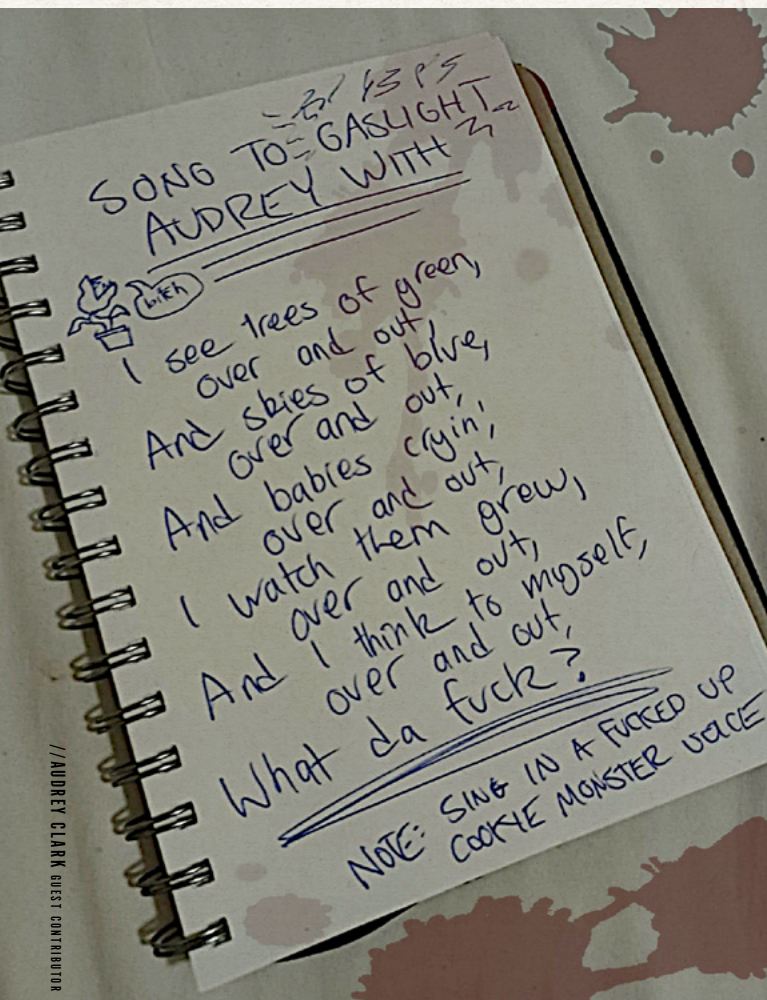 SONG TO GASLIGHT
AUDREY WITH
bitch
I see trees of green,
over and out,
And skies of blue,
over and out,
And babies cryin',
over and out,
I watch them grew,
over and out,
And I think to myself,
over and out,
What da fuck?
NOTE: SING IN A FUCKED UP
COOKIE MONSTER VOICE
//AUDREY CLARK GUEST CONTRIBUTOR